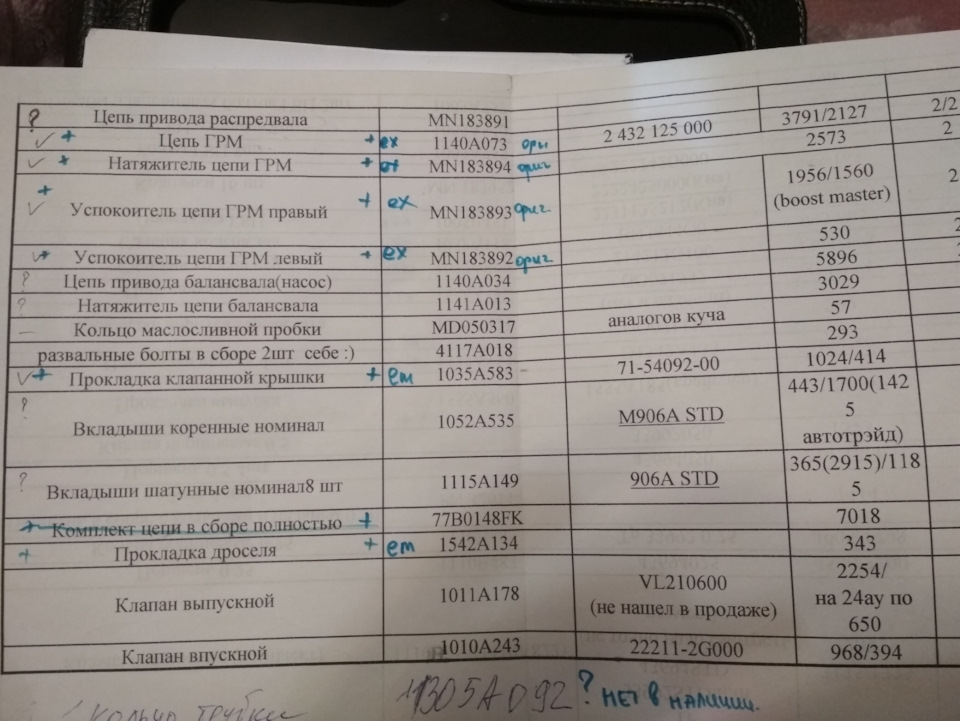 ? Цепь привода распредвала MN183891 3791/2127 2/2
✓ + Цепь ГРМ + ex 1140A073 ориг 2 432 125 000 2573 2
✓ + Натяжитель цепи ГРМ + ex MN183894 ориг
✓ + Успокоитель цепи ГРМ правый + ex MN183893 ориг. 1956/1560 2
(boost master)
✓ + Успокоитель цепи ГРМ левый + ex MN183892 ориг 530 2
? Цепь привода балансвала(насос) 1140A034 5896
? Натяжитель цепи балансвала 1141A013 3029
— Кольцо маслосливной пробки MD050317 аналогов куча 57
развальные болты в сборе 2шт себе :) 4117A018 293
✓ + Прокладка клапанной крышки + em 1035A583 - 71-54092-00 1024/414
? Вкладыши коренные номинал 1052A535 M906A STD 443/1700(142
5
автотрэйд)
? Вкладыши шатунные номинал8 шт 1115A149 906A STD 365(2915)/118
5
+ Комплект цепи в сборе полностью + 77B0148FK 7018
+ Прокладка дроселя + em 1542A134 343
Клапан выпускной 1011A178 VL210600 2254/
(не нашел в продаже) на 24ау по
650
Клапан впускной 1010A243 22211-2G000 968/394
1305A092 ? НЕТ В НАЛИЧИИ.
✓ Кольцо трубки